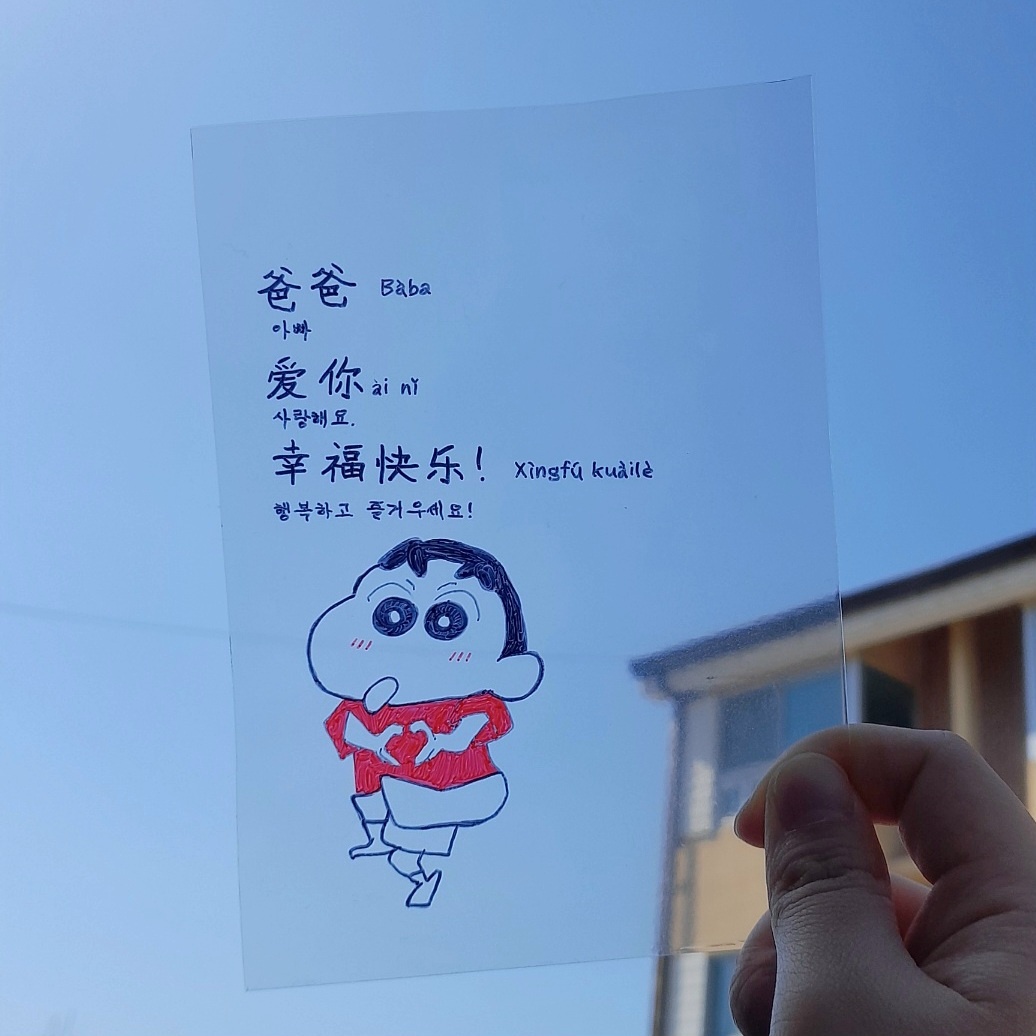 爸爸 Bàba
아빠
爱你 ài nǐ
사랑해요.
幸福快乐! Xìngfú kuàilè
행복하고 즐거우세요!